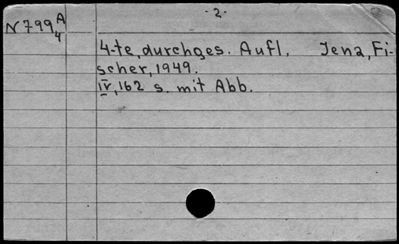 -2-
N799 A/4
4-te, durchges. Aufl. Jena, Fi-
scher, 1949.
IV, 162 s. mit Abb.